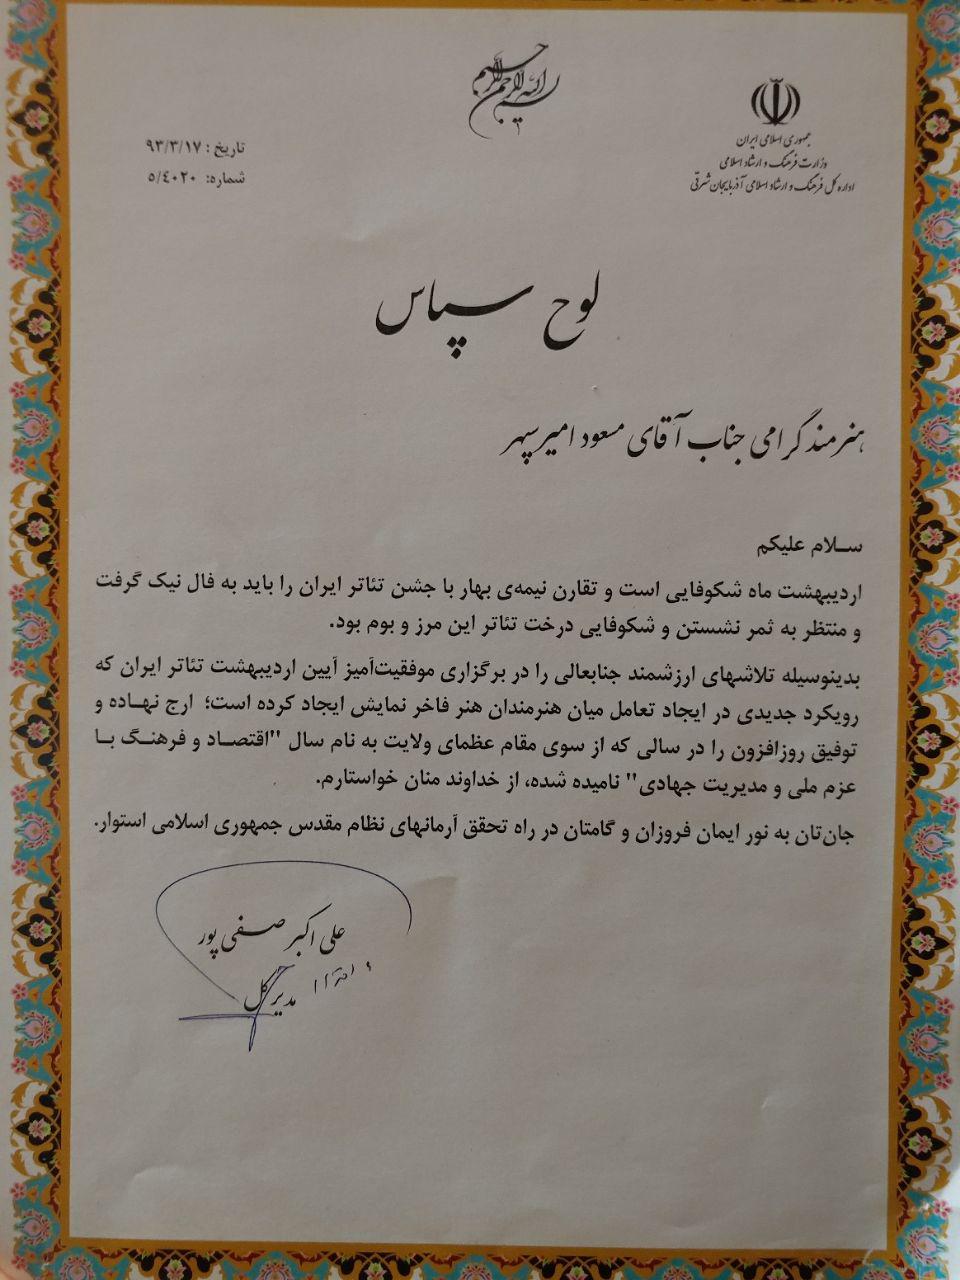 بسم الله الرحمن الرحیم
جمهوری اسلامی ایران
وزارت فرهنگ و ارشاد اسلامی
اداره کل فرهنگ و ارشاد اسلامی آذربایجان شرقی
تاریخ : ۹۳/۳/۱۷
شماره: ۵/۴۰۲۰
لوح سپاس
هنرمند گرامی جناب آقای مسعود امیرسپهر
سلام علیکم
اردیبهشت ماه شکوفایی است و تقارن نیمه‌ی بهار با جشن تئاتر ایران را باید به فال نیک گرفت
و منتظر به ثمر نشستن و شکوفایی درخت تئاتر این مرز و بوم بود.
بدینوسیله تلاشهای ارزشمند جنابعالی را در برگزاری موفقیت‌آمیز آیین اردیبهشت تئاتر ایران که
رویکرد جدیدی در ایجاد تعامل میان هنرمندان هنر فاخر نمایش ایجاد کرده است؛ ارج نهاده و
توفیق روزافزون را در سالی که از سوی مقام عظمای ولایت به نام سال "اقتصاد و فرهنگ با
عزم ملی و مدیریت جهادی" نامیده شده، از خداوند منان خواستارم.
جان‌تان به نور ایمان فروزان و گامتان در راه تحقق آرمانهای نظام مقدس جمهوری اسلامی استوار.
علی اکبر صفی پور
مدیر کل